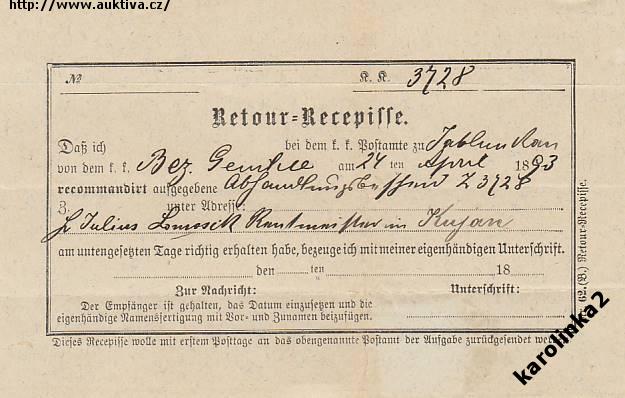 http://www.auktiva.cz/
№ K. K. 3728
Retour=Recepisse.
Daß ich bei dem k. k. Postamte zu Jablunkau
von dem k. k. Bez. Gerichte am 24 ten April 1893
recommandirt aufgegebene Z 3728
Z. unter Adresse:
H Julius Rentmeister in
am untengesetzten Tage richtig erhalten habe, bezeuge ich mit meiner eigenhändigen Unterschrift.
den ten 18
Zur Nachricht: Unterschrift:
Der Empfänger ist gehalten, das Datum einzusetzen und die
eigenhändige Namensfertigung mit Vor- und Zunamen beizufügen.
Dieses Recepisse wolle mit erstem Posttage an das obengenannte Postamt der Aufgabe zurückgesendet
62. (B.) Retour=Recepisse.
karolinka2